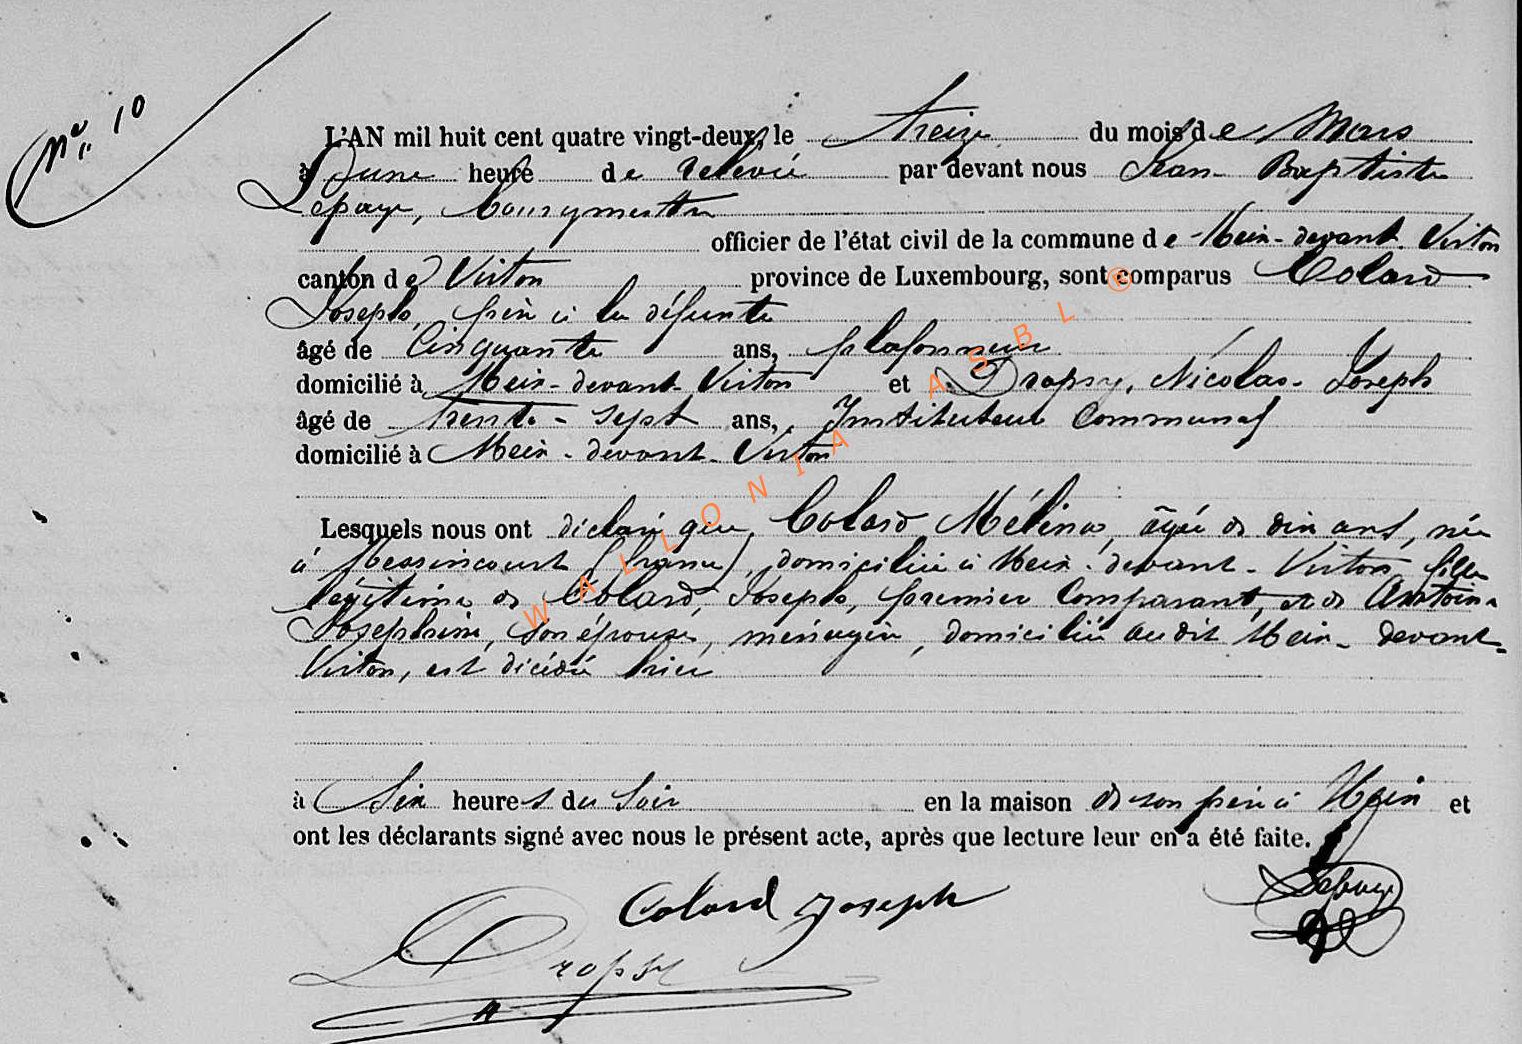 N° 10
L'AN mil huit cent quatre vingt-deux, le treize du mois de Mars
à Dune heure de relevée par devant nous Jean Baptiste
Lepage, bourgmestre
officier de l'état civil de la commune de Meix-devant-Virton
canton de Virton province de Luxembourg, sont comparus Colard
Joseph, père à la défunte
âgé de Cinquante ans, plafonneur
domicilié à Meix-devant-Virton et Dropsy, Nicolas-Joseph
âgé de trente-sept ans, Instituteur Communal
domicilié à Meix-devant-Virton
Lesquels nous ont déclaré que Colard Mélina, âgée de dix ans, née
à Messincourt (france), domiciliée à Meix-devant-Virton, fille
légitime de Colard, Joseph, premier Comparant, et de Antoine
Josephine, son épouse, ménagère, domiciliée audit Meix-devant-
Virton, est décédée hier
à Six heures du soir en la maison de son père à Meix et
ont les déclarants signé avec nous le présent acte, après que lecture leur en a été faite.
Colard Joseph Lepage
Dropsy
WALLONIA ASBL ©